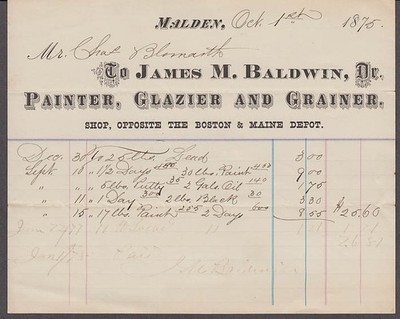 Malden, Oct. 1st 1875.
Mr. Chas Blomarth
To James M. Baldwin, Dr.
Painter, Glazier and Grainer.
Shop, opposite the Boston & Maine Depot.
Dec. 30 25 lbs Lead 3 00
Sept 10 1 1/2 Days 4.00 30 lbs. Paint 4.00 9 00
" " 5 lbs Putty 35 2 Gals Oil 1 40 1 75
" 11 1 Day 300 2 lbs. Black 30 3 30
" 15 17 lbs. Paint 255 2 Days 600 8 55 $25.60